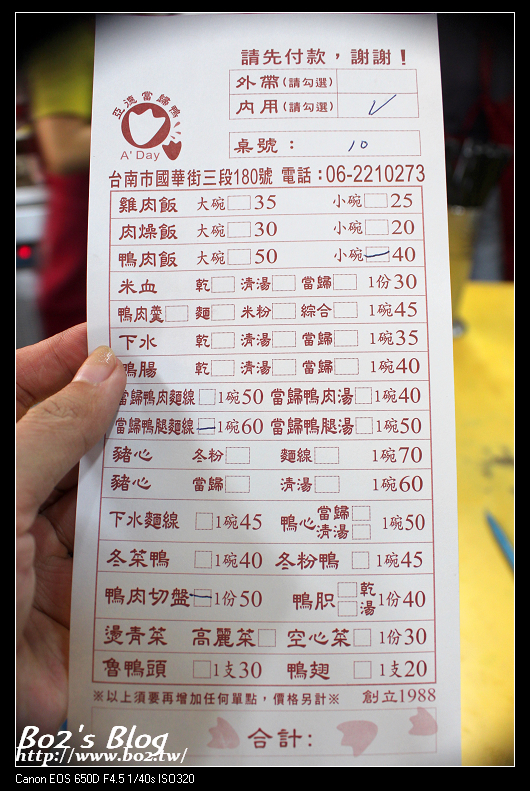 請先付款，謝謝！
外帶(請勾選)
內用(請勾選)
桌號： 10
亞德當歸鴨
A' Day
台南市國華街三段180號 電話：06-2210273
雞肉飯 大碗 35 小碗 25
肉燥飯 大碗 30 小碗 20
鴨肉飯 大碗 50 小碗 40
米血 乾 清湯 當歸 1份30
鴨肉羹 麵 米粉 綜合 1碗45
下水 乾 清湯 當歸 1碗35
鴨腸 乾 清湯 當歸 1碗40
當歸鴨肉麵線 1碗50 當歸鴨肉湯 1碗40
當歸鴨腿麵線 1碗60 當歸鴨腿湯 1碗50
豬心 冬粉 麵線 1碗70
豬心 當歸 清湯 1碗60
下水麵線 1碗45 鴨心 當歸 清湯 1碗50
冬菜鴨 1碗40 冬粉鴨 1碗45
鴨肉切盤 1份50 鴨胘 乾 湯 1份40
燙青菜 高麗菜 空心菜 1份30
魯鴨頭 1支30 鴨翅 1支20
※以上須要再增加任何單點，價格另計※ 創立1988
合計：
Bo2's Blog
http://www.bo2.tw/
Canon EOS 650D F4.5 1/40s ISO320